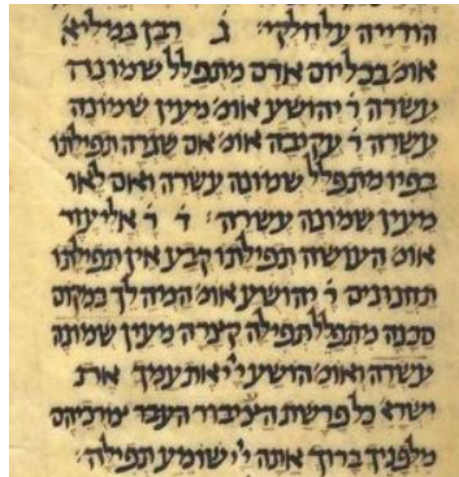 הודייה על חלקי׃ ג רבן גמליא
אומ׳ בכל יום אדם מתפלל שמונה
עשרה ר׳ יהושע אומ׳ מעין שמונה
עשרה ר׳ עקיבה אומ׳ אם שגרה תפילתו
בפיו מתפלל שמונה עשרה ואם לאו
מעין שמונה עשרה׃ ד ר׳ אליעזר
אומ׳ העושה תפילתו קבע אין תפילתו
תחנונים ר׳ יהושע אומ׳ המהלך במקום
סכנה מתפלל תפילה קצרה מעין שמונה
עשרה ואומ׳ הושע יי את עמך את
ישרא׳ כל פרשת הציבור העבר צורכיהם
מלפניך ברוך אתה יי שומע תפילה׃